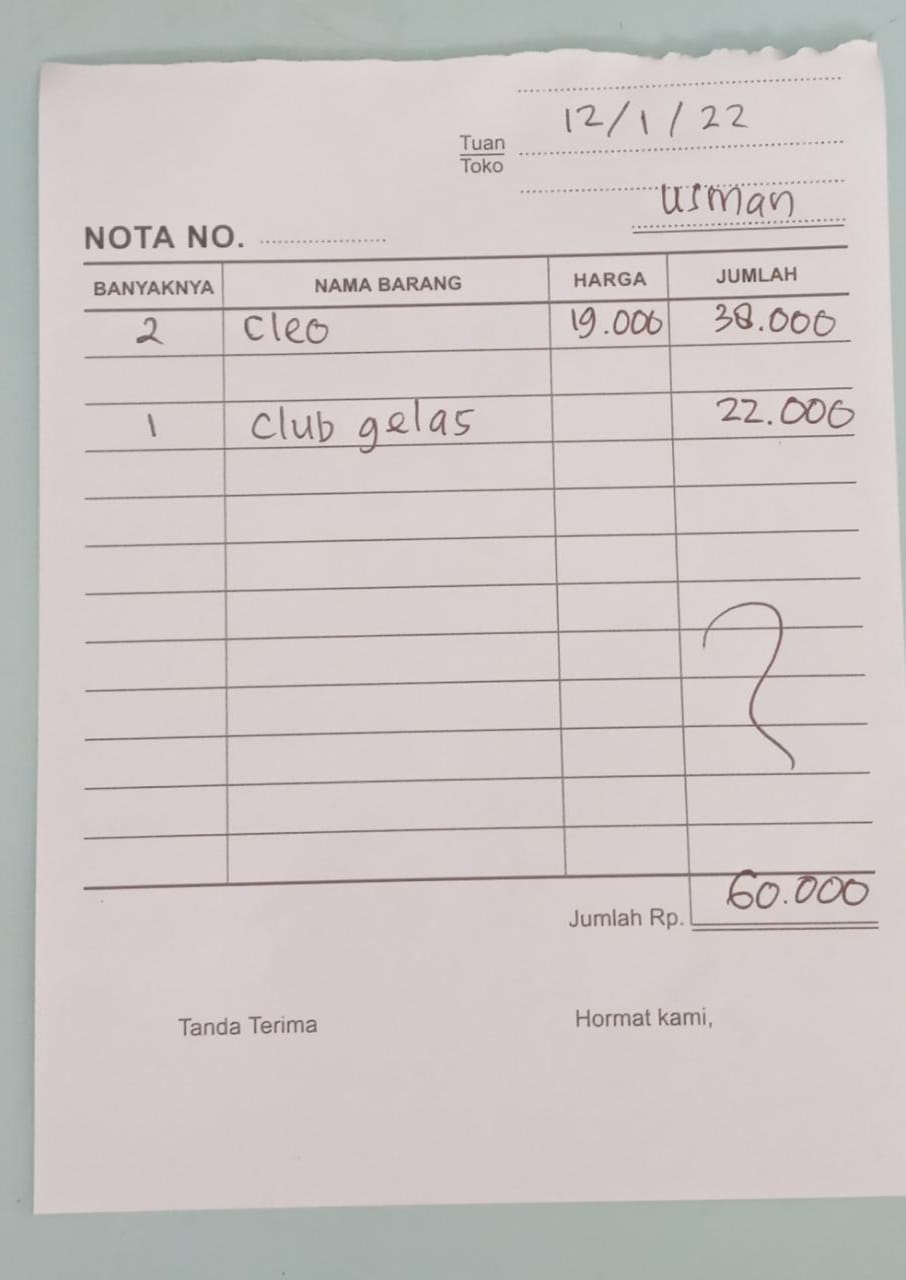 12/1/22
Tuan
Toko
Usman
NOTA NO.
BANYAKNYA NAMA BARANG HARGA JUMLAH
2 Cleo 19.000 38.000
1 Club gelas 22.000
Jumlah Rp. 60.000
Tanda Terima Hormat kami,